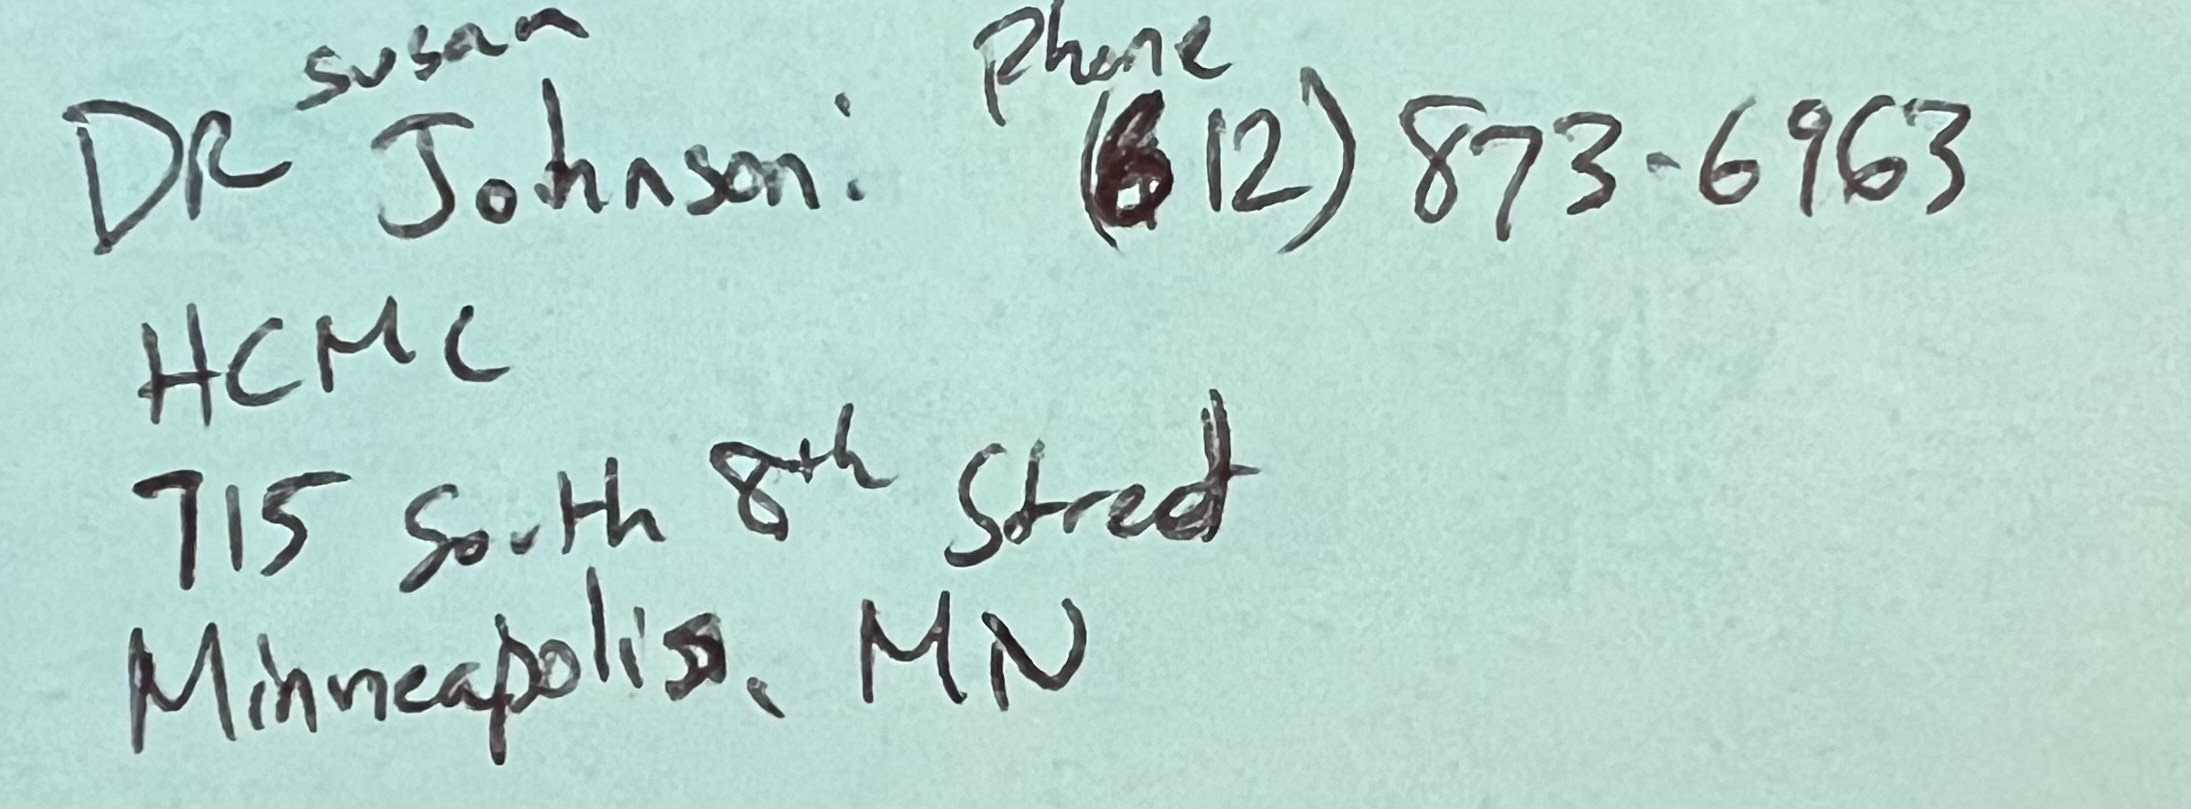 DR Susan Johnson: Phone (612) 873-6963
HCMC
715 South 8th Street
Minneapolis, MN